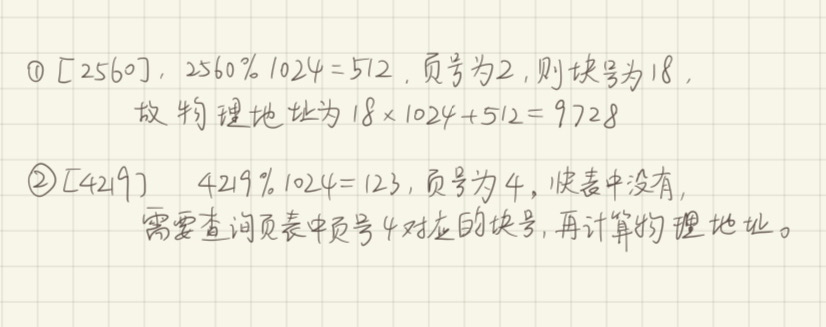 ① [2560]，2560%1024=512，页号为2，则块号为18，
故物理地址为18×1024+512=9728
② [4219] 4219%1024=123，页号为4，快表中没有，
需要查询页表中页号4对应的块号，再计算物理地址。